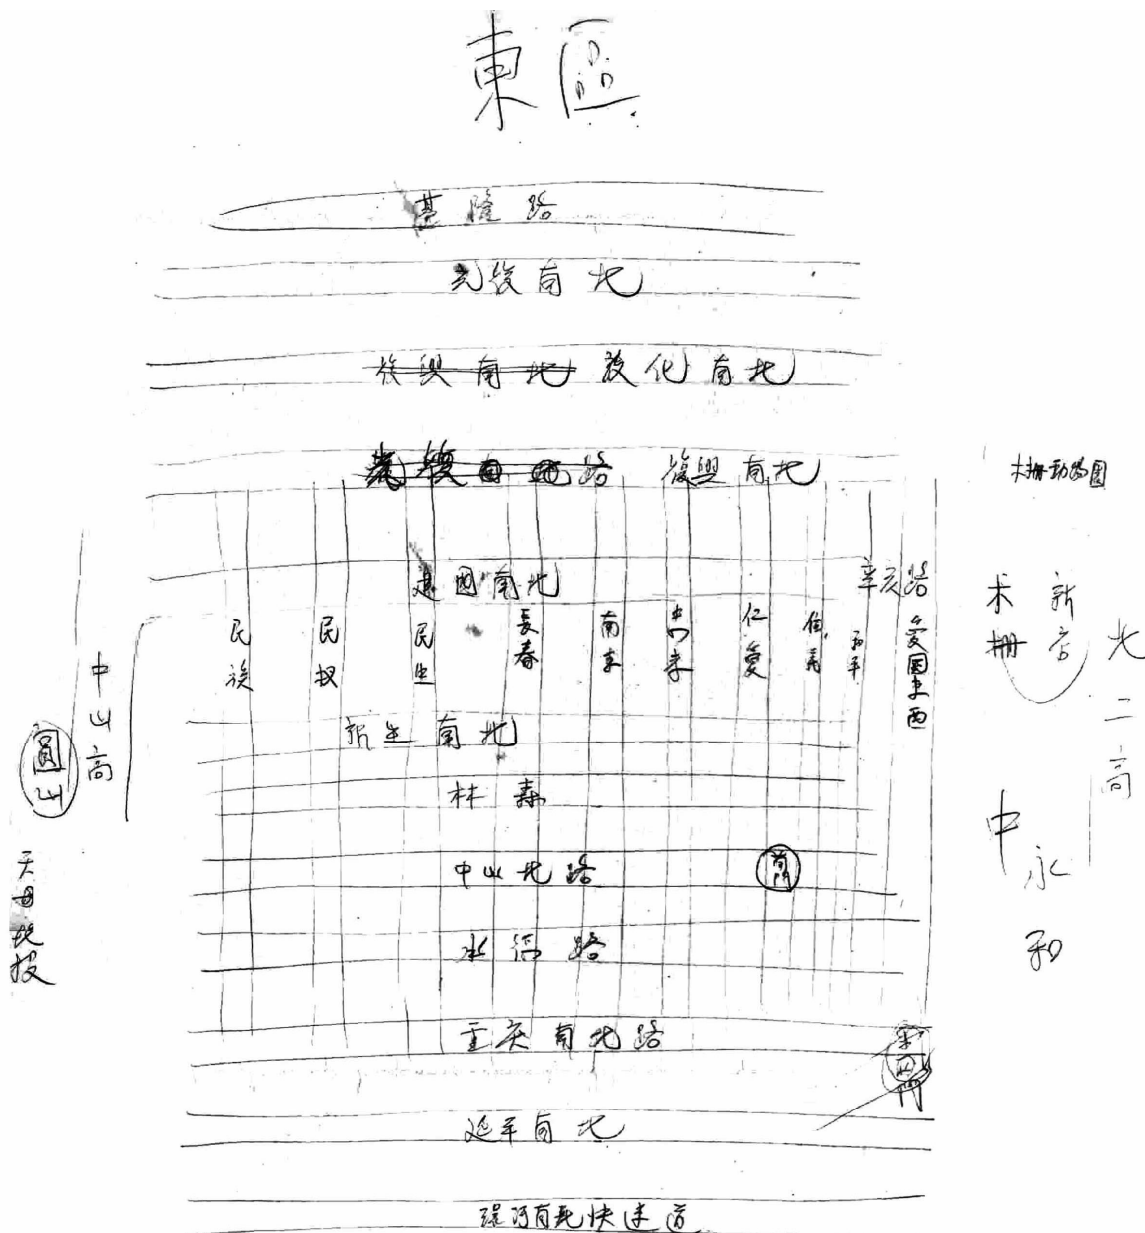 東區
基隆路
光復南北
復興南北 敦化南北
路 復興南北
木柵動物園
建國南北
辛亥路
民族
民权
民生
長春
南京
忠孝
仁愛
信義
和平
愛國東西
木柵
新店
北二高
中山高
圓山
新生南北
林森
中山北路
中永和
天母北投
承德路
重庆南北路
西門
延平南北
環河南北快速道